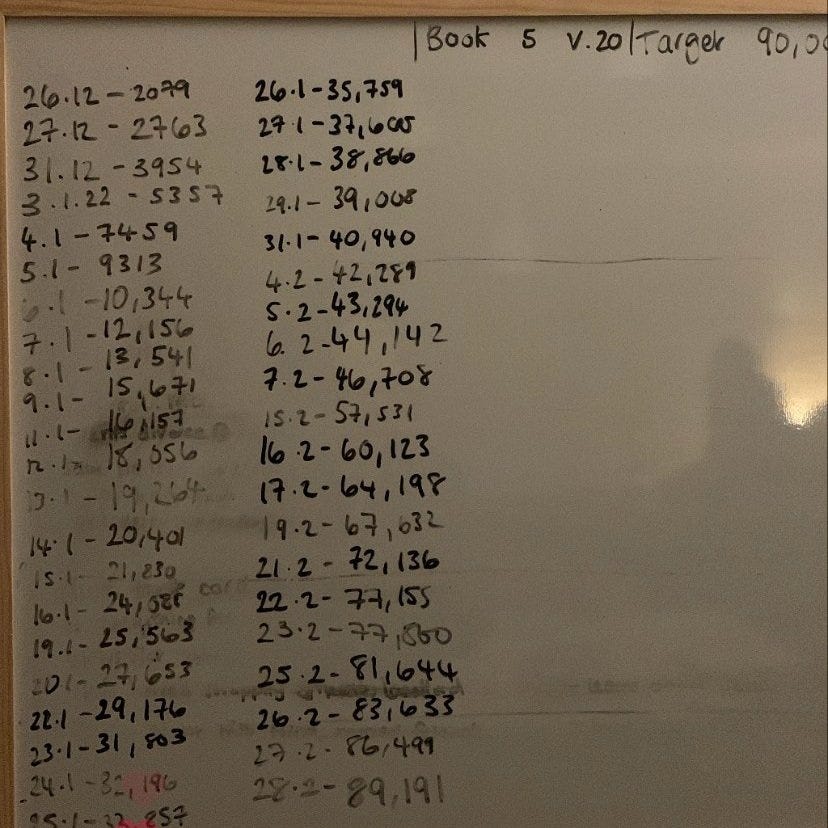 Book 5 V.20 Target 90,0
26.12 - 2079
27.12 - 2763
31.12 - 3954
3.1.22 - 5357
4.1 - 7459
5.1 - 9313
6.1 - 10,344
7.1 - 12,156
8.1 - 13,541
9.1 - 15,671
11.1 - 16,157
12.1 - 18,056
13.1 - 19,264
14.1 - 20,401
15.1 - 21,230
16.1 -
19.1 - 25,563
20.1 - 27,653
22.1 - 29,176
23.1 - 31,803
24.1 - 32,196
25.1 - 33,857
26.1 - 35,759
27.1 -
28.1 - 38,866
29.1 - 39,008
31.1 - 40,940
4.2 - 42,289
5.2 - 43,294
6.2 - 44,142
7.2 - 46,708
15.2 - 57,531
16.2 - 60,123
17.2 - 64,198
19.2 - 67,632
21.2 - 72,136
22.2 - 77,155
23.2 - 77,860
25.2 - 81,644
26.2 - 83,633
27.2 - 86,499
28.2 - 89,191